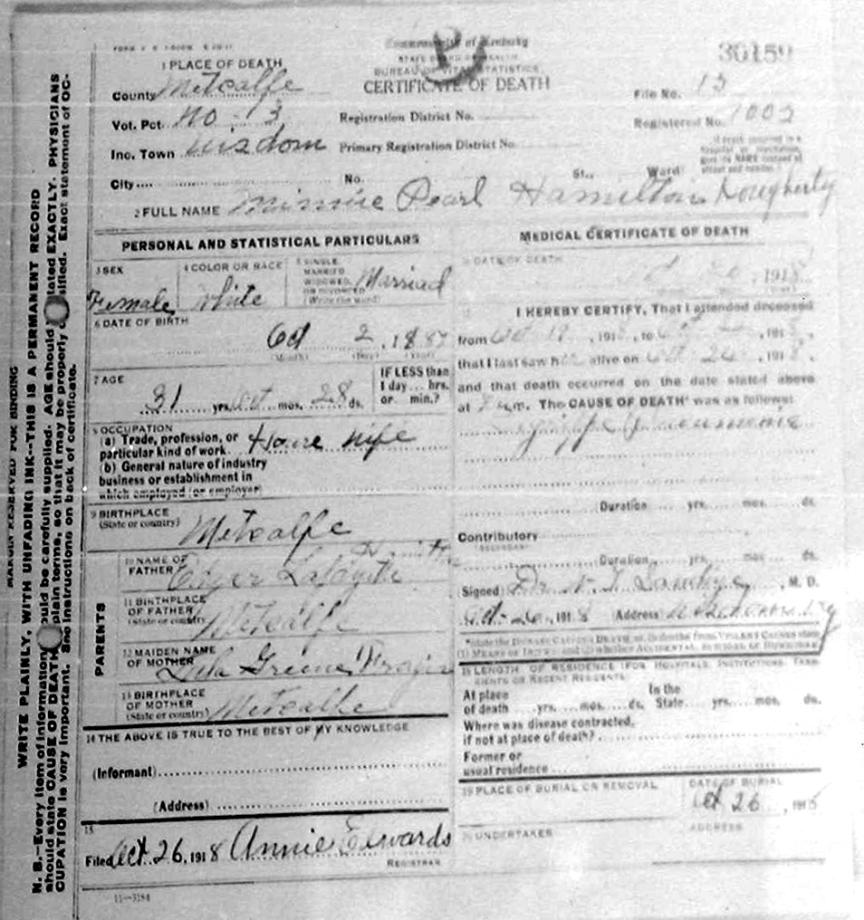 Commonwealth of Kentucky
STATE BOARD OF HEALTH
BUREAU OF VITAL STATISTICS
CERTIFICATE OF DEATH
30159
1 PLACE OF DEATH
County Metcalfe
File No. 13
Vot. Pct. No - 13 Registration District No.
Registered No. 1002
Inc. Town Wisdom Primary Registration District No.
City No. St., Ward)
2 FULL NAME Minnie Pearl Hamilton Dougherty
PERSONAL AND STATISTICAL PARTICULARS
3 SEX Female
4 COLOR OR RACE White
5 SINGLE, MARRIED, WIDOWED, OR DIVORCED (Write the word) Married
6 DATE OF BIRTH
Oct 2, 1887
7 AGE
31 yrs. mos. 28 ds.
IF LESS than
1 day... hrs.
or min.?
8 OCCUPATION
(a) Trade, profession, or
particular kind of work House Wife
(b) General nature of industry
business or establishment in
which employed (or employer)
9 BIRTHPLACE
(State or country) Metcalfe
PARENTS
10 NAME OF
FATHER Edger Lafayette
11 BIRTHPLACE
OF FATHER
(State or country) Metcalfe
12 MAIDEN NAME
OF MOTHER Greene Frazier
13 BIRTHPLACE
OF MOTHER
(State or country) Metcalfe
14 THE ABOVE IS TRUE TO THE BEST OF MY KNOWLEDGE
(Informant)
(Address)
15
Filed Oct 26, 1918 Annie Edwards
REGISTRAR
11-3184
MEDICAL CERTIFICATE OF DEATH
DATE OF DEATH
, 1918
I HEREBY CERTIFY, That I attended deceased
from Oct 19, 1918, to Oct , 1918,
that I last saw her alive on Oct 26, 1918,
and that death occurred on the date stated above
at m. The CAUSE OF DEATH was as follows:
pneumonia
Duration yrs. mos. ds.
Contributory
Duration yrs. mos. ds.
(Signed) Dr. , M. D.
Oct-26, 1918 Address
18 LENGTH OF RESIDENCE (FOR HOSPITALS, INSTITUTIONS, TRANSIENTS OR RECENT RESIDENTS)
At place
of death yrs. mos. ds.
In the
State yrs. mos. ds.
Where was disease contracted,
if not at place of death?
Former or
usual residence
19 PLACE OF BURIAL OR REMOVAL
DATE OF BURIAL
Oct 26, 1918
20 UNDERTAKER
ADDRESS
MARGIN RESERVED FOR BINDING
WRITE PLAINLY, WITH UNFADING INK--THIS IS A PERMANENT RECORD
N. B.--Every item of information should be carefully supplied. AGE should be stated EXACTLY. PHYSICIANS
should state CAUSE OF DEATH in plain terms, so that it may be properly classified. Exact statement of OC-
CUPATION is very important. See instructions on back of certificate.